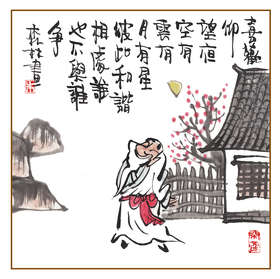 喜歡
仰
望夜
空有
雲有
月有星
彼此和諧
相處誰
也不與誰
争
森林畫